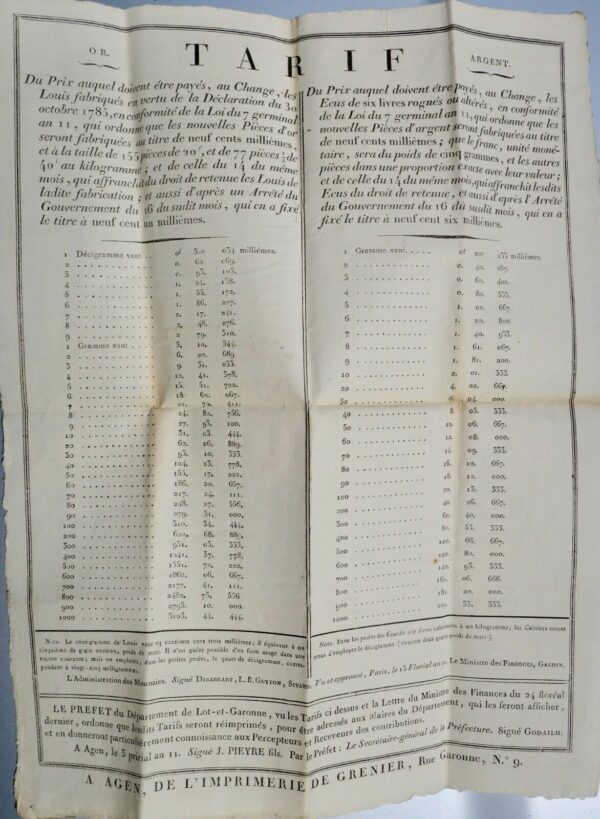 OR. TARIF ARGENT.
Du Prix auquel doivent être payés, au Change, les
Louis fabriqués en vertu de la Déclaration du 30
octobre 1785, en conformité de la Loi du 7 germinal
an 11, qui ordonne que les nouvelles Pièces d'or
seront fabriquées au titre de neuf cents millièmes,
et à la taille de 155 pièces de 20f, et de 77 pièces ½ de
40f au kilogramme; et de celle du 14 du même
mois, qui affranchit du droit de retenue les Louis de
ladite fabrication; et aussi d'après un Arrêté du
Gouvernement du 16 du susdit mois, qui en a fixé
le titre à neuf cent un millièmes.
1 Décigramme vaut... of 31c 034 millièmes.
2 0. 62. 069.
3 0. 93. 103.
4 1. 24. 138.
5 1. 55. 172.
6 1. 86. 207.
7 2. 17. 241.
8 2. 48. 276.
9 2 79. 310.
1 Gramme vaut 3. 10. 344.
2 6. 20. 689
3 9. 31. 033.
4 12. 41. 378.
5 15. 51. 722.
6 18. 62. 067.
7 21. 72. 411.
8 24. 82. 756.
9 27. 93. 100.
10 31. 03. 444.
20 62. 06. 889.
30 93. 10. 333.
40 124. 13. 778.
50 155. 17. 222.
60 186. 20. 667.
70 217. 24. 111.
80 248. 27. 556.
90 279. 31. 000.
100 310. 34. 444.
200 620. 68. 889.
300 931. 03. 333.
400 1241. 37. 778.
500 1551. 72. 222.
600 1862. 06. 667.
700 2172. 41. 111.
800 2482. 75. 556
900 2793. 10. 000.
1000 3103. 44. 444.
NOTA. Le centigramme de Louis vaut 03 centimes cent trois millièmes; il équivaut à un
cinquième de grain environ, poids de marc. Il n'est guère possible d'en faire usage dans une
mais on emploiera, dans les petites pesées, le quart de décigramme,
pendant à vingt-cinq milligrammes.
L'Administration des Monnaies. Signé DIBARRART, L. B. GUYTON,
Du Prix auquel doivent être payés, au Change, les
Ecus de six livres rognés ou altérés, en conformité
de la Loi du 7 germinal an 11, qui ordonne que les
nouvelles Pièces d'argent seront fabriquées au titre
de neuf cents millièmes; que le franc, unité moné-
taire, sera du poids de cinq grammes, et les autres
pièces dans une proportion exacte avec leur valeur;
et de celle du 14 du même mois, qui affranchit lesdits
Ecus du droit de retenue, et aussi d'après l'Arrêté
du Gouvernement du 16 du susdit mois, qui en a
fixé le titre à neuf cent six millièmes.
1 Gramme vaut of 20c 133 millièmes.
2 0. 40. 267.
3 0. 60. 400.
4 0. 80. 533.
5 1. 00. 667.
6 1. 20. 800.
7 1. 40. 933.
8 1. 61. 067.
9 1. 81. 200.
10 2. 01. 333.
20 4. 02. 667.
30 6. 04. 000.
40 8. 05. 333.
50 10. 06. 667.
60 12. 08. 000.
70 14. 09. 333.
80 16. 10. 667.
90 18. 12. 000.
100 20. 13. 333.
200 40. 26. 667.
300 60. 40. 000.
400 80. 53. 333.
500 100. 66. 667.
600 120. 80. 000.
700 140. 93. 333.
800 161. 06. 666.
900 181. 20. 000.
1000 201. 33. 333.
NOTA. Dans les pesées des Ecus de six livres inférieures à un kilogramme, les Caissiers seront
tenus d'employer le décigramme (environ deux grains poids de marc).
Vu et approuvé, Paris, le 15 Floréal an 11. Le Ministre des Finances, GAUDIN.
LE PREFET du Département de Lot-et-Garonne, vu les Tarifs ci dessus et la Lettre du Ministre des Finances du 24 floréal
dernier, ordonne que lesdits Tarifs seront réimprimés, pour être adressés aux Maires du Département, qui les feront afficher,
et en donneront particulièrement connoissance aux Percepteurs et Receveurs des contributions.
A Agen, le 3 prairial an 11. Signé J. PIEYRE fils. Par le Préfet: Le Secrétaire-général de la Préfecture. Signé GODAILH.
A AGEN, DE L'IMPRIMERIE DE GRENIER, Rue Garonne, N.° 9.